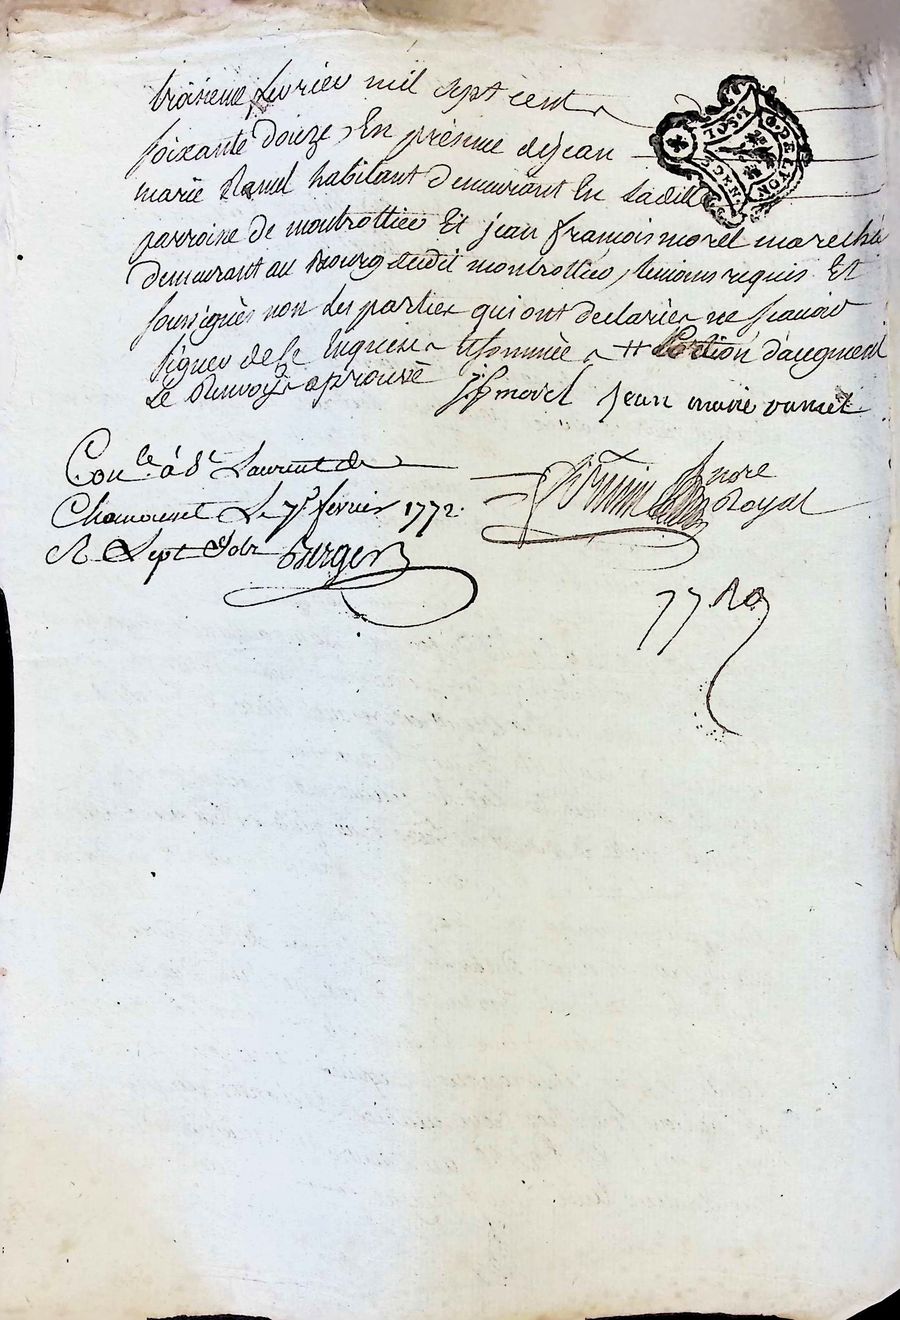 troisieme fevrier mil sept cent
soixante douze, En présence de jean
marie Ramel habitant demeurant En Ladille
parroisse de montrottier Et jean françois morel marechal
demeurant au Bourg dudit montrottier, temoins requis Et
soussignés non les parties qui ont declarées ne scavoir
signer de ce Enquises Et sommées # portion d'augment
Le Renvoy aprouvé
j f morel jean marie ramel
nore
Royal
Con.lé à St Laurent de
Chamousset Le 7e février 1772.
R Sept Sols Berger
GEN. DE LYON